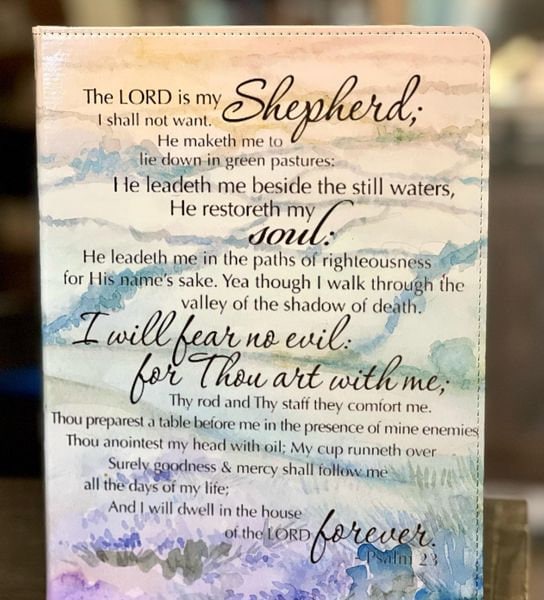 The LORD is my Shepherd;
I shall not want.
He maketh me to
lie down in green pastures:
He leadeth me beside the still waters,
He restoreth my
soul:
He leadeth me in the paths of righteousness
for His name's sake. Yea though I walk through the
valley of the shadow of death.
I will fear no evil:
for Thou art with me;
Thy rod and Thy staff they comfort me.
Thou preparest a table before me in the presence of mine enemies
Thou anointest my head with oil; My cup runneth over
Surely goodness & mercy shall follow me
all the days of my life;
And I will dwell in the house
of the LORD forever.
Psalm 23